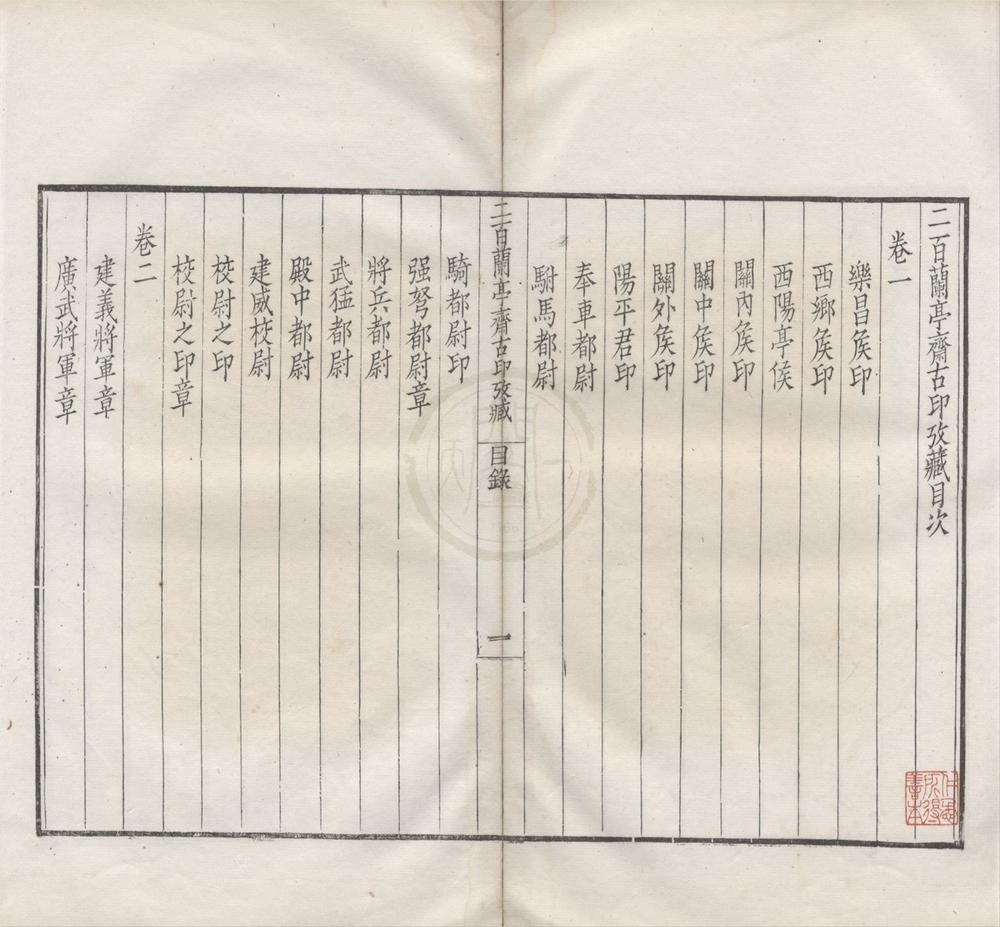 二百蘭亭齋古印攷藏目次
卷一
樂昌矦印
西鄉矦印
西陽亭侯
關內矦印
關中矦印
關外矦印
陽平君印
奉車都尉
駙馬都尉
二百蘭亭齋古印攷藏 目錄 一
騎都尉印
强弩都尉章
將兵都尉
武猛都尉
殿中都尉
建威校尉
校尉之印
校尉之印章
卷二
建義將軍章
廣武將軍章